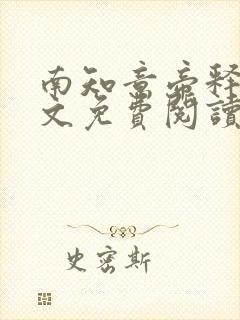 南知意帝释
文免費閱讀
史密斯